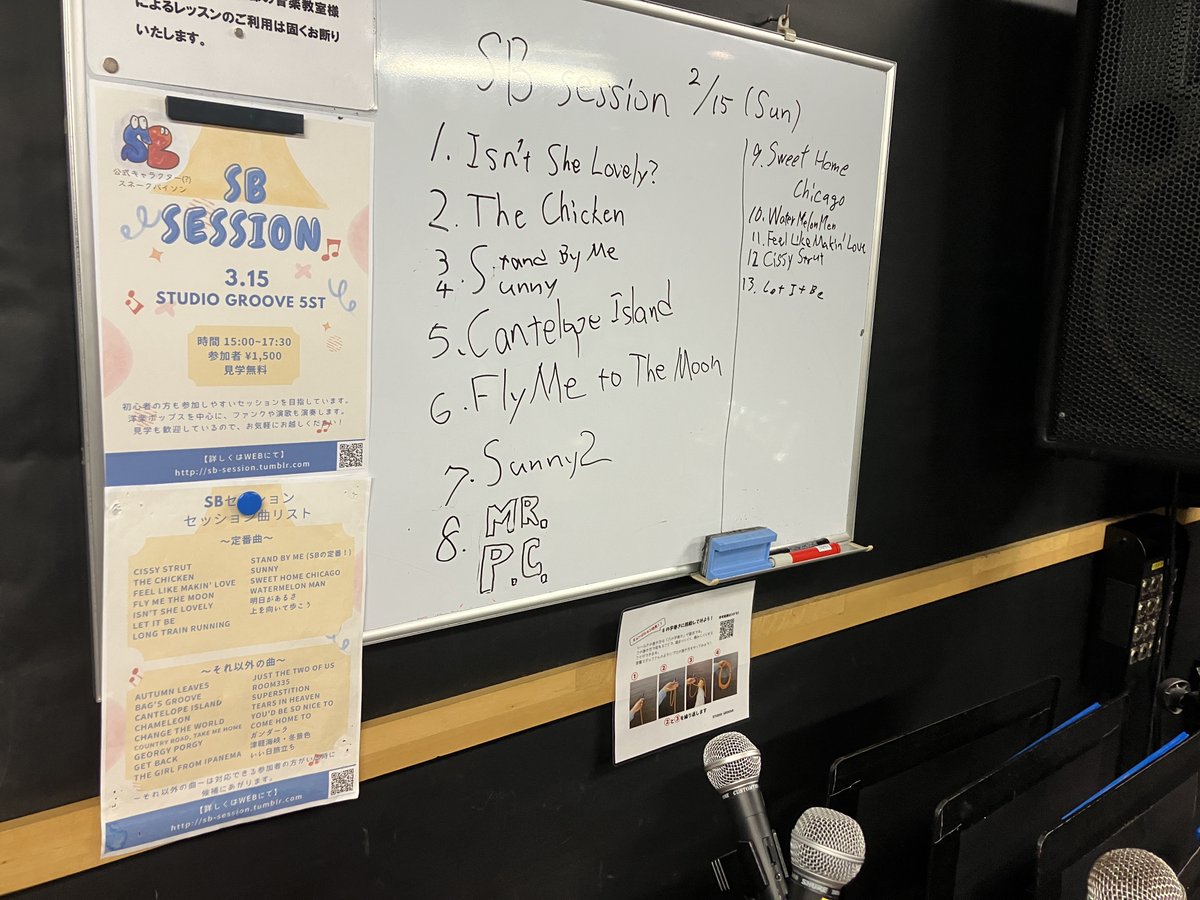 によるレッスンのご利用は固くお断り
いたします。
公式キャラクター(?)
スネークバイソン
SB
SESSION
3.15
STUDIO GROOVE 5ST
時間 15:00~17:30
参加者 ¥1,500
見学無料
初心者の方も参加しやすいセッションを目指しています。
洋楽ポップスを中心に、ファンクや演歌も演奏します。
見学も歓迎しているので、お気軽にお越しください!
【詳しくはWEBにて】
http://sb-session.tumblr.com
SBセッション
セッション曲リスト
~定番曲~
CISSY STRUT
THE CHICKEN
FEEL LIKE MAKIN' LOVE
FLY ME THE MOON
ISN'T SHE LOVELY
LET IT BE
LONG TRAIN RUNNING
STAND BY ME (SBの定番!)
SUNNY
SWEET HOME CHICAGO
WATERMELON MAN
明日があるさ
上を向いて歩こう
~それ以外の曲~
AUTUMN LEAVES
BAG'S GROOVE
CANTELOPE ISLAND
CHAMELEON
CHANGE THE WORLD
COUNTRY ROAD, TAKE ME HOME
GEORGY PORGY
GET BACK
THE GIRL FROM IPANEMA
JUST THE TWO OF US
ROOM335
SUPERSTITION
TEARS IN HEAVEN
YOU'D BE SO NICE TO
COME HOME TO
ガンダーラ
津軽海峡・冬景色
いい日旅立ち
~それ以外の曲~は対応できる参加者の方がいる時に
候補にあがります。
【詳しくはWEBにて】
http://sb-session.tumblr.com
SB session 2/15 (Sun)
1. Isn't She Lovely?
2. The Chicken
3 Stand By Me
4. Sunny
5. Cantelope Island
6. Fly Me to The Moon
7. Sunny2
8. MR.
P.C.
9. Sweet Home
Chicago
10. Water Melon Men
11. Feel Like Makin' Love
12 Cissy Strut
13. Let It Be
① ② ③ ④
②と③を繰り返します
STUDIO GROOVE